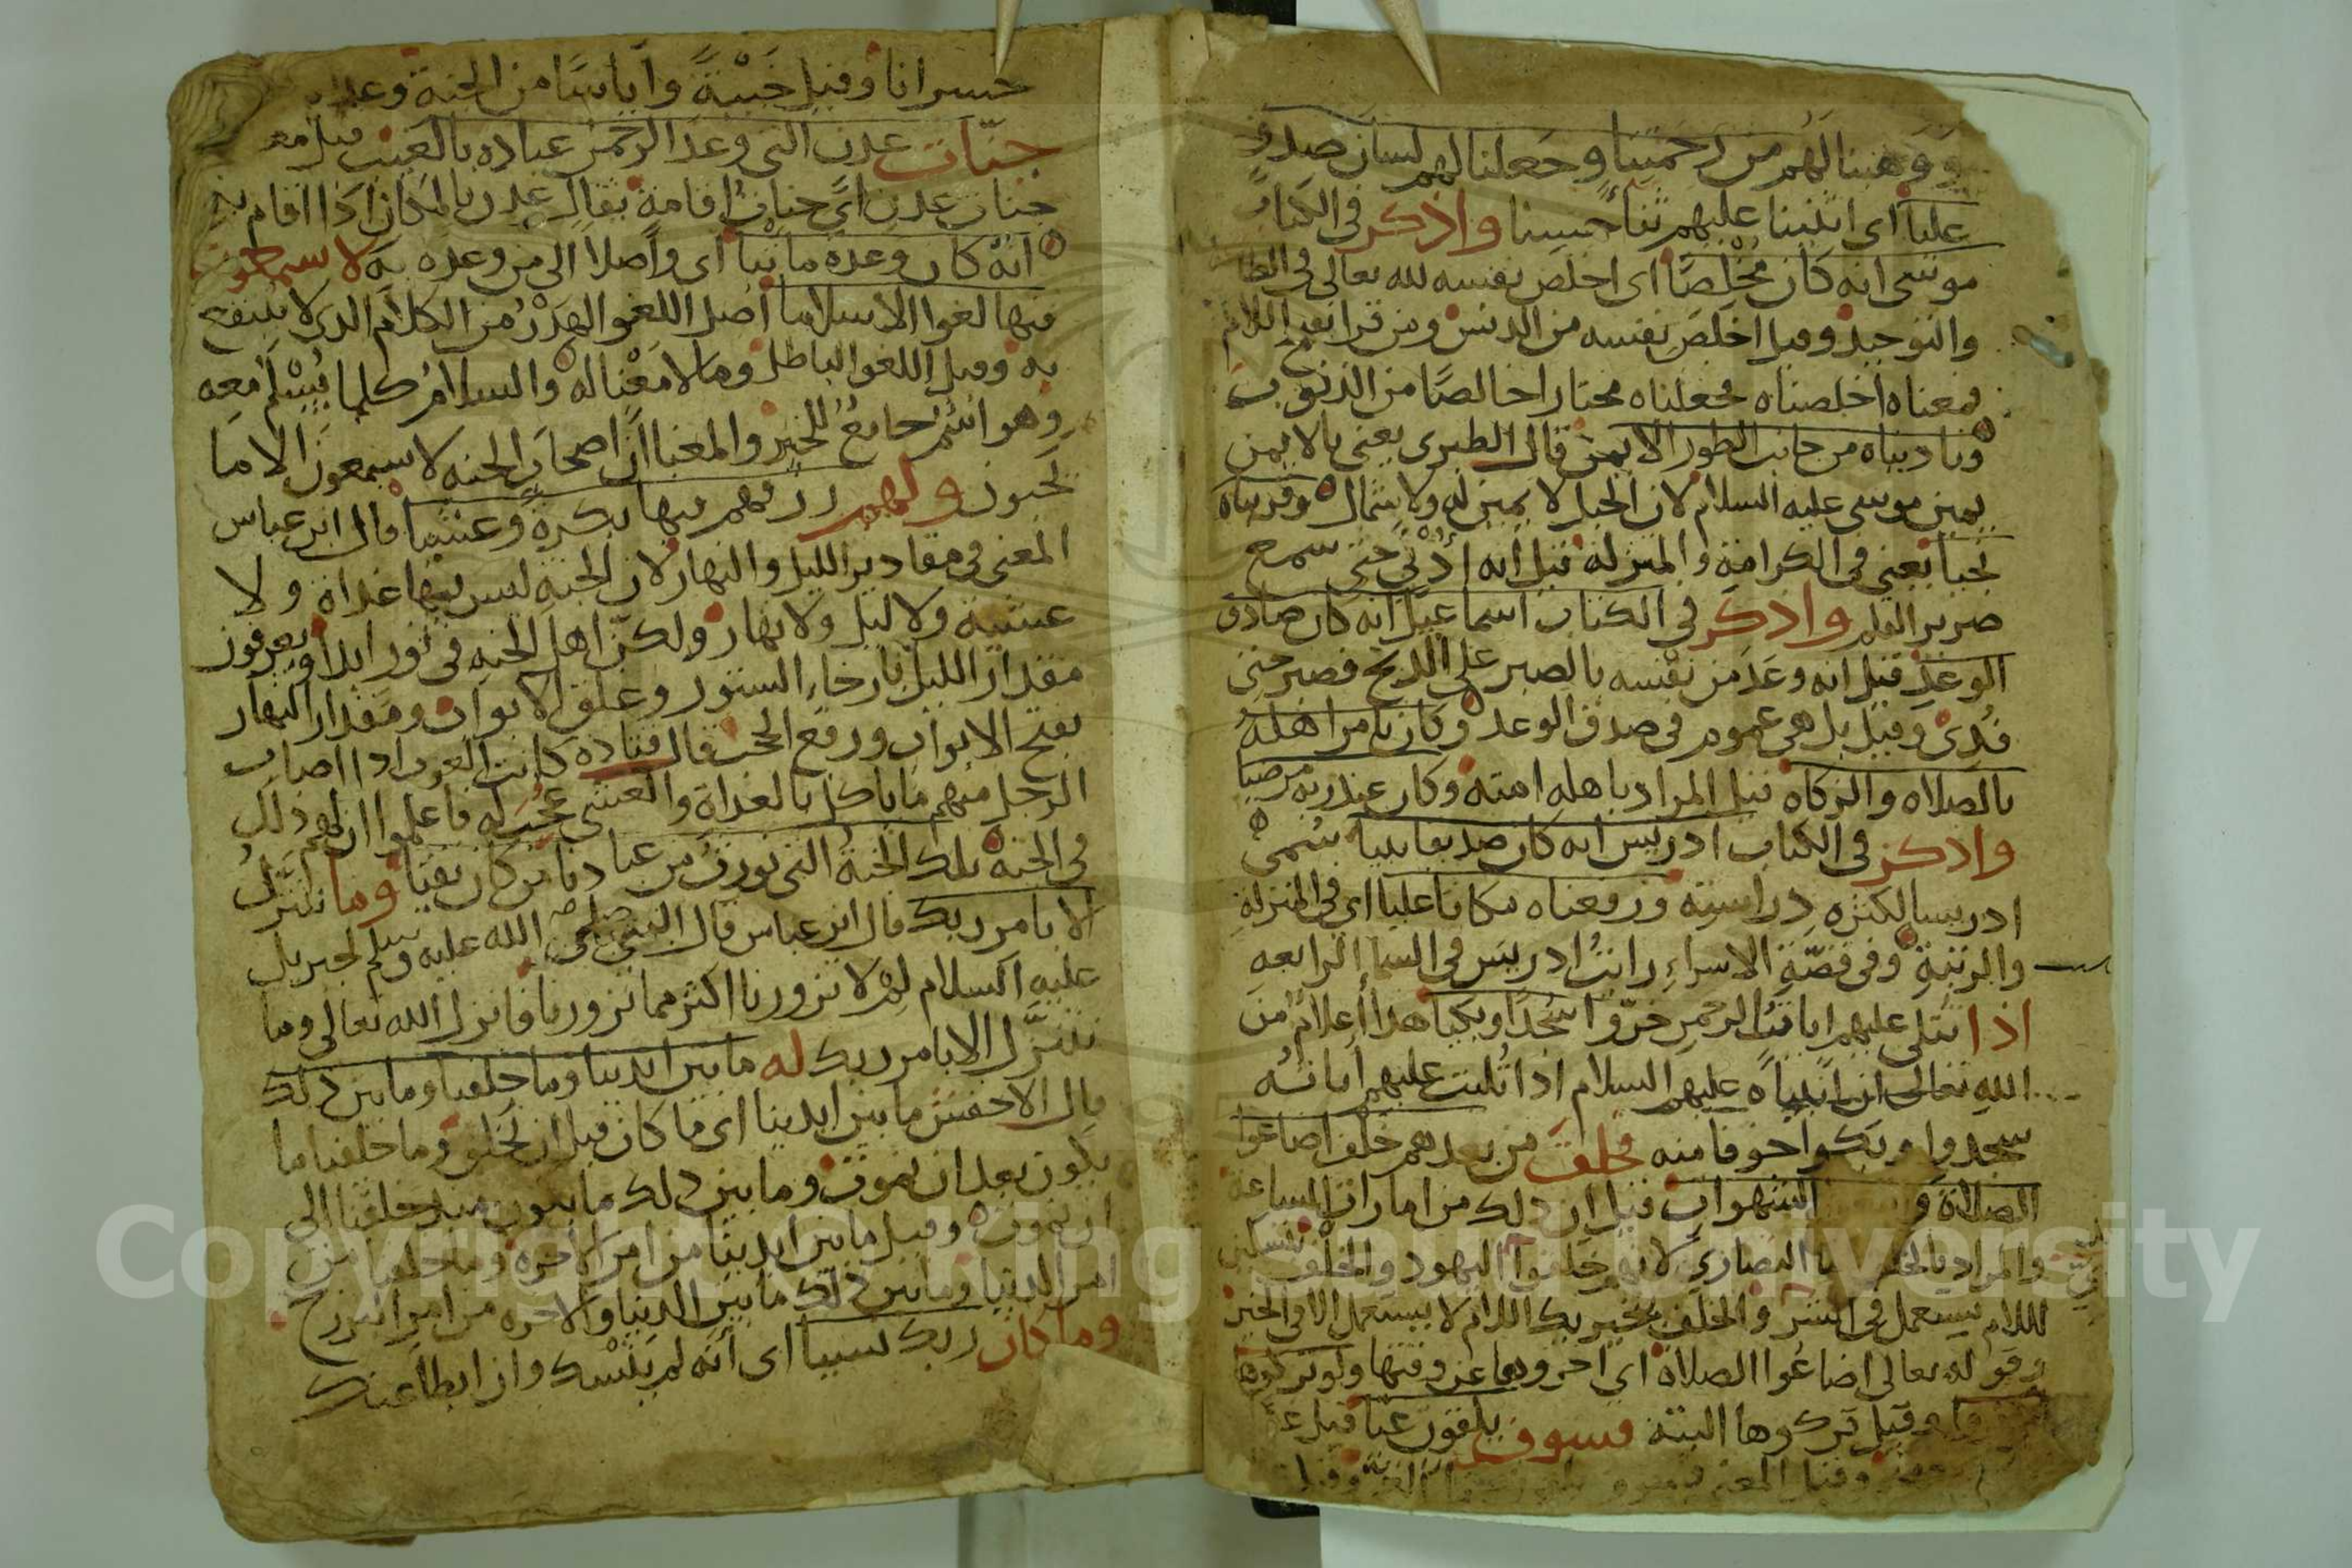 ووهبنا لهم من رحمتنا وجعلنا لهم لسان صدق
عليا اي اثنينا عليهم ثناء حسنا واذكر في الكتاب
موسى انه كان مخلصا اي اخلص نفسه لله تعالى في
والتوحيد وقيل اخلص نفسه من الدنس ومن قرا بفتح اللام
فمعناه اخلصناه فجعلناه مختارا خالصا من الذنوب
وناديناه من جانب الطور الايمن قال الطبري يعني بالايمن
يمين موسى عليه السلام لان الجبل لا يمين له ولا شمال وقربناه
نجيا يعني في الكرامة والمنزلة قيل انه ادني حتى سمع
صرير القلم واذكر في الكتاب اسماعيل انه كان صادق
الوعد قيل انه وعد من نفسه بالصبر على الذبح فصبر حتى
فدي وقيل بل هي عموم في صدق الوعد وكان يامر اهله
بالصلاه والزكاه قيل المراد باهله امته وكان عند ربه مرضيا
واذكر في الكتاب ادريس انه كان صديقا نبيا سمي
ادريسا لكثرة دراسته ورفعناه مكانا عليا اي في المنزلة
والرتبة وفي قصة الاسراء رايت ادريس في السما الرابعه
اذا تتلى عليهم ايات الرحمن خروا سجدا وبكيا هذا اعلام من
الله تعالى ان انبياه عليهم السلام اذا تليت عليهم اياته
سجدوا وبكوا خوفا منه فخلف من بعدهم خلف اضاعوا
الصلاة الشهوات قيل ان ذلك من امارات الساعة
والمراد النصارى لانهم خلفوا اليهود والخلف
اللام يستعمل في الشر والخلف بتحريك اللام لا يستعمل الا في الخير
وقوله تعالى اضاعوا الصلاة اي اخروها عن وقتها ولو تركوها
وقيل تركوها البتة فسوف يلقون غيا قيل
وقيل المعنى
خسرانا وقيل خيبة واياسا من الجنة
جنات عدن التي وعد الرحمن عباده بالغيب قيل
جنات عدن اي جنات اقامة يقال عدن بالمكان اذا اقام به
انه كان وعده ماتيا اي واصلا الى من وعده به لا يسمعون
فيها لغوا الا سلاما اصل اللغو الهذر من الكلام الذي لا ينتفع
به وقيل اللغو الباطل وما لا معنا له والسلام كلما يسلم معه
وهو اسم جامع للخير والمعنا ان اصحاب الجنه لا يسمعون الا ما
يحبون ولهم رزقهم فيها بكرة وعشيا قال ابن عباس
المعنى في مقادير الليل والنهار لان الجنه ليس فيها غداة ولا
عشية ولا ليل ولا نهار ولكن اهل الجنه في نور ابدا ويعرفون
مقدار الليل بارخاء الستور وغلق الابواب ومقدار النهار
بفتح الابواب ورفع الحجب قال قتاده كانت العرب اذا اصاب
الرجل منهم ما ياكل بالغداة والعشي عجب له فاعلموا ان لهم ذلك
في الجنة تلك الجنة التي نورث من عبادنا من كان تقيا وما نتنزل
الا بامر ربك قال ابن عباس قال النبي صلى الله عليه وسلم لجبريل
عليه السلام لم لا تزورنا اكثر مما تزورنا فانزل الله تعالى وما
نتنزل الا بامر ربك له ما بين ايدينا وما خلفنا وما بين ذلك
قال الاخفش ما بين ايدينا اي ما كان قبل ان نخلق وما خلفنا ما
يكون بعد ان نموت وما بين ذلك ما يكون منذ خلقنا الى
ان نموت وقيل ما بين ايدينا من امر الاخرة وما خلفنا من
امر الدنيا وما بين ذلك ما بين الدنيا والاخره من امر البرزخ
وما كان ربك نسيا اي انه لم ينسك وان ابطا عنك
Copyright © King Saud University